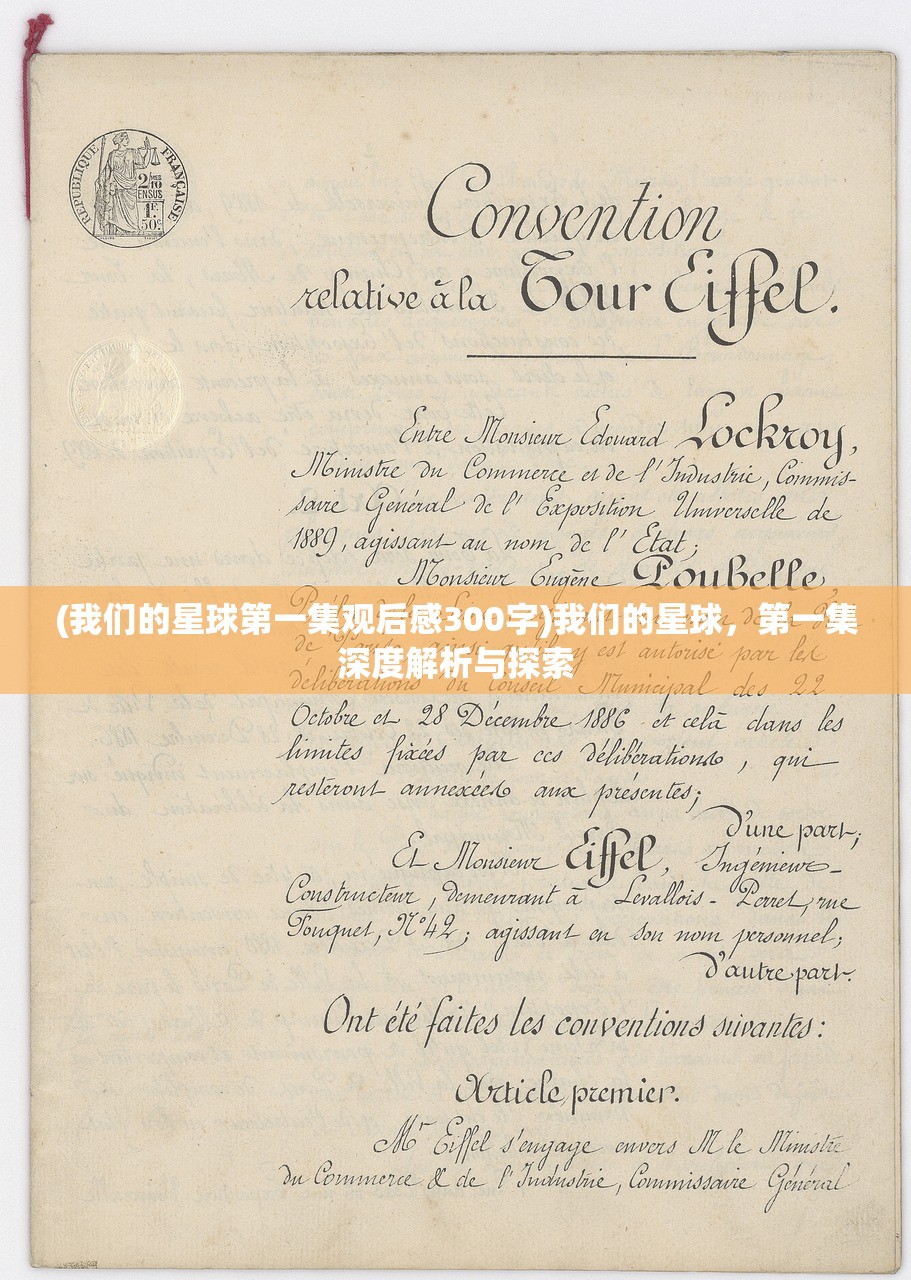 RÉPUBLIQUE FRANÇAISE
2/10
EN SUS
1F.
50c
Convention
relative à la Tour Eiffel.
Entre Monsieur Edouard Lockroy,
Ministre du Commerce et de l'Industrie, Commis-
saire Général de l'Exposition Universelle de
1889, agissant au nom de l'Etat;
Monsieur Eugène Poubelle,
(我们的星球第一集观后感300字)我们的星球，第一集
深度解析与探索
est autorisé par les
délibérations du Conseil Municipal des 22
Octobre et 28 Décembre 1886 et celà dans les
limites fixées par ces délibérations, qui
resteront annexées aux présentes;
d'une part;
Et Monsieur Eiffel, Ingénieur-
Constructeur, demeurant à Levallois-Perret, rue
Fouquet, N°42; agissant en son nom personnel;
d'autre part.
Ont été faites les conventions suivantes:
Article premier.
Mr Eiffel s'engage envers M le Ministre
du Commerce & de l'Industrie, Commissaire Général